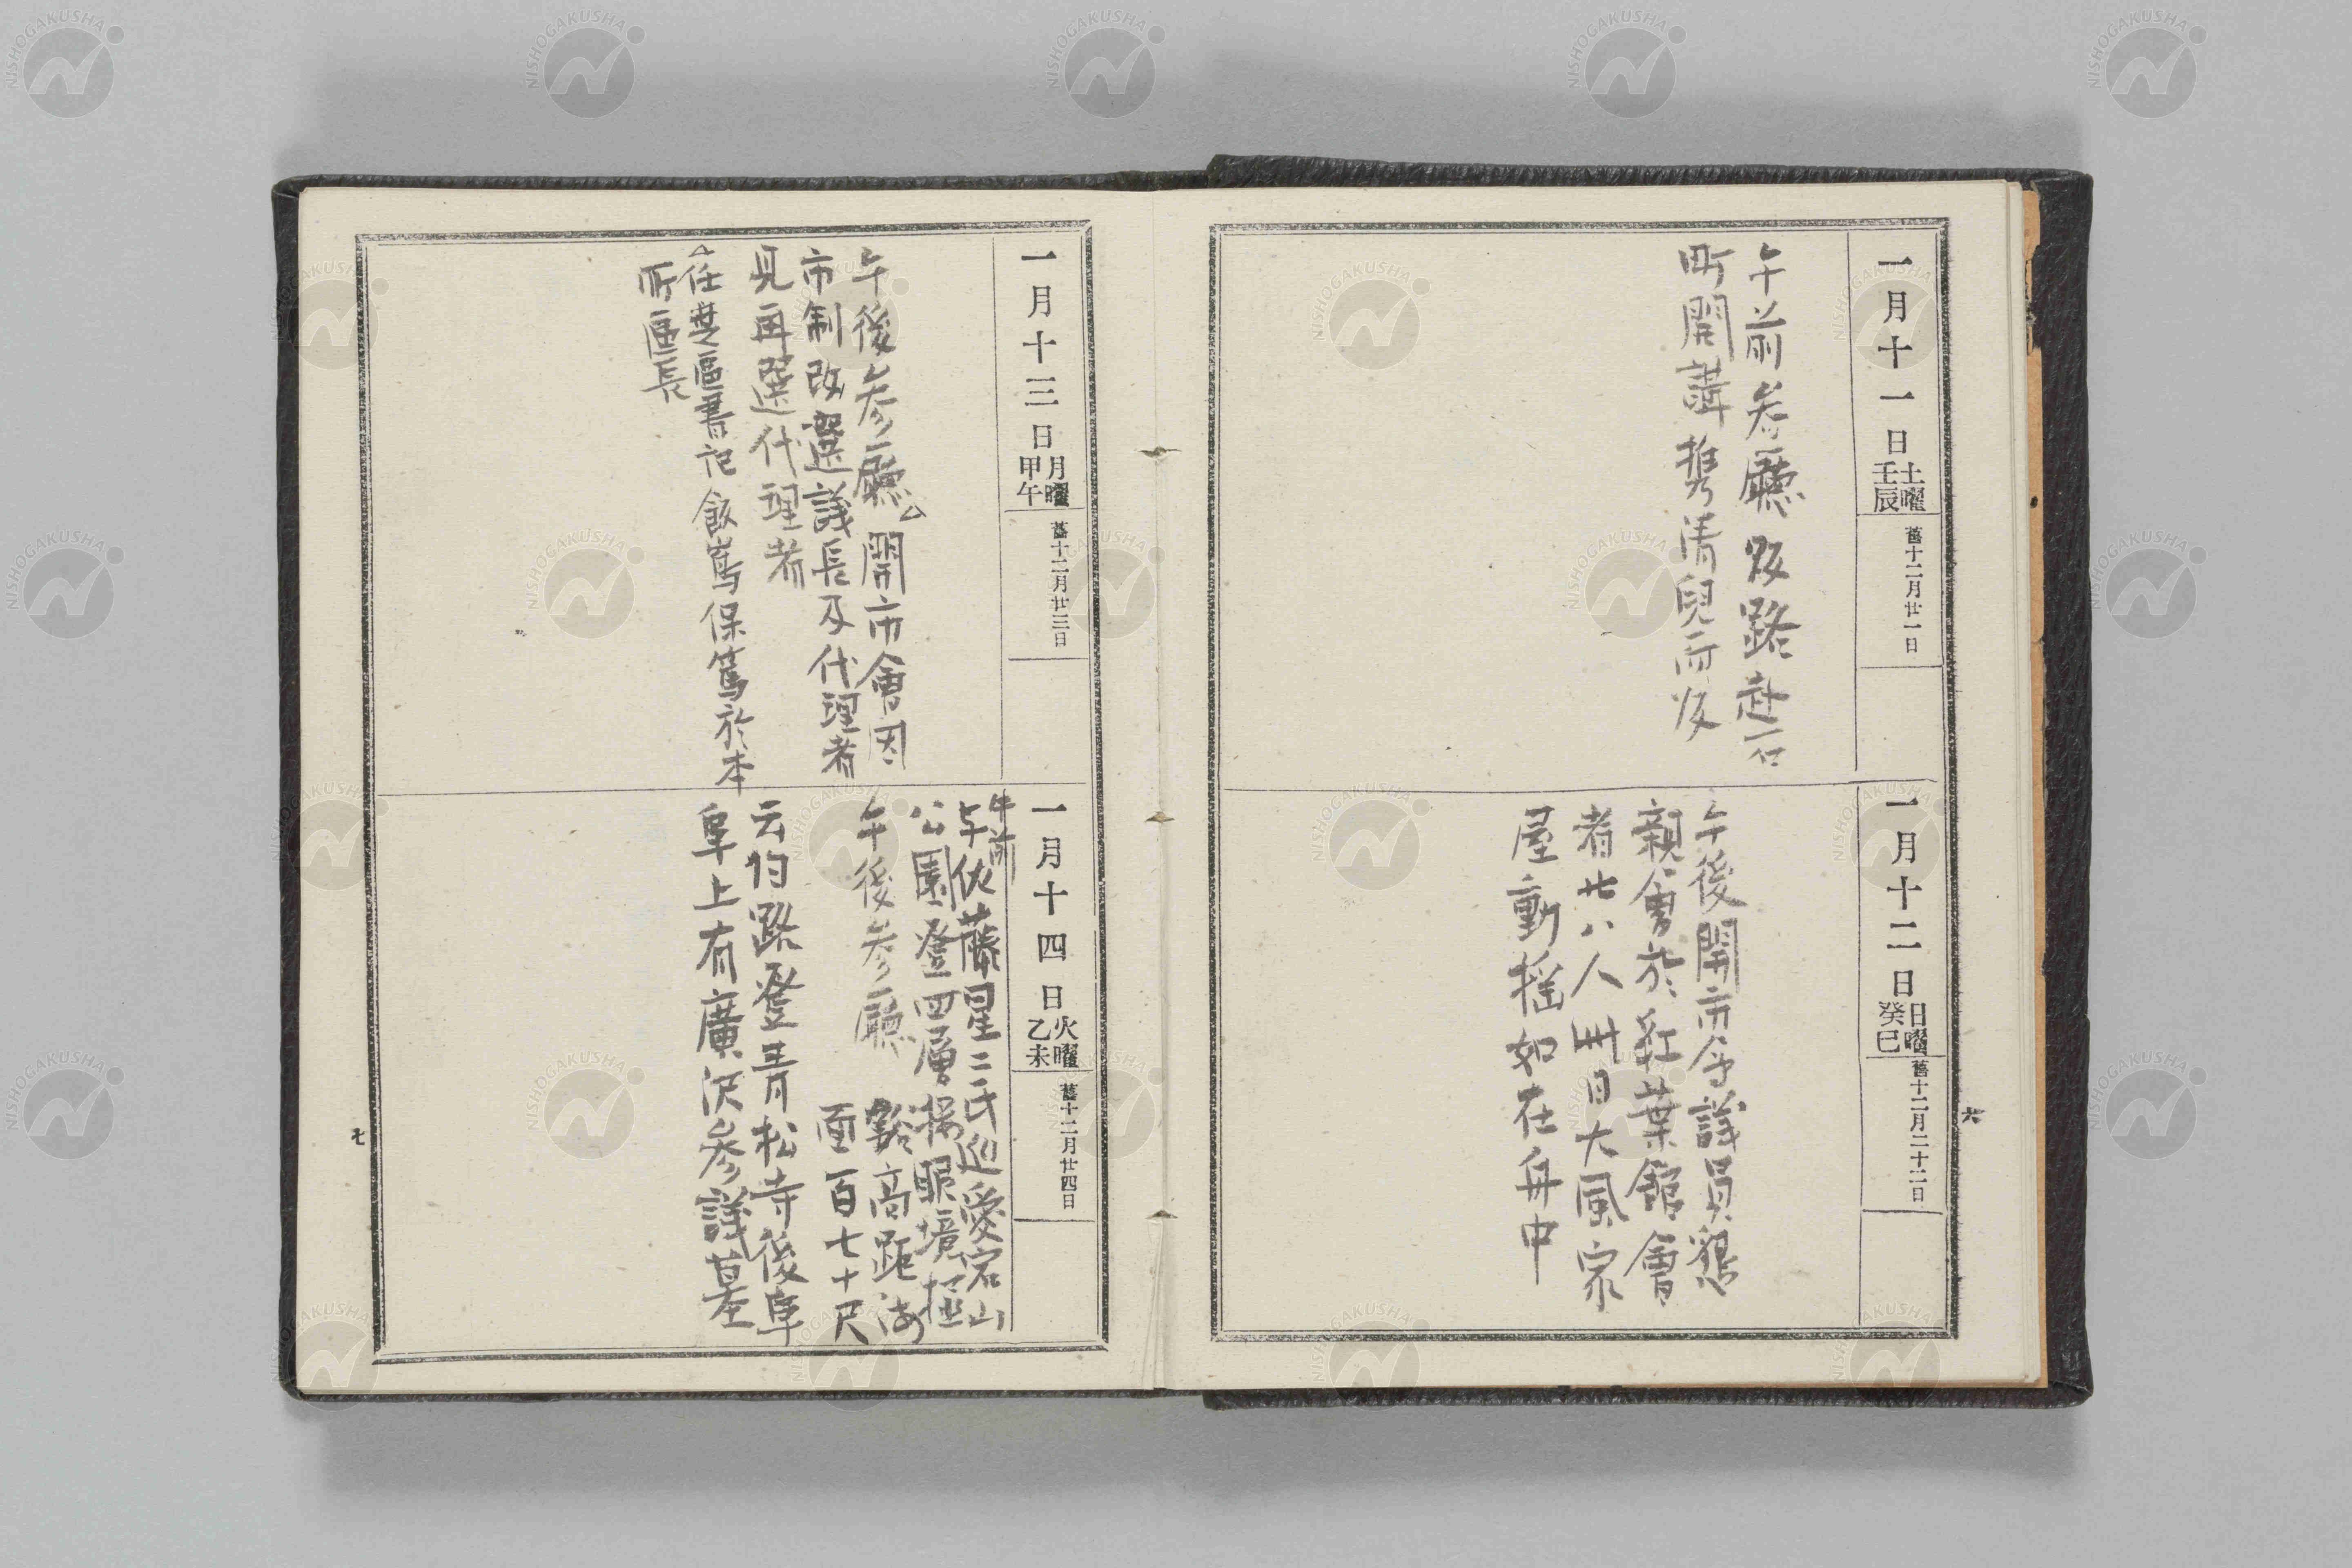 一月十一日 土曜 壬辰 舊十二月廿一日
午前参廳皈路赴一口
町開講携清兒而皈
一月十二日 日曜 癸巳 舊十二月二十二日
午後開市会議員懇
親會於紅葉館會
者廿八人此日大風家
屋動揺如在舟中
六
一月十三日 月曜 甲午 舊十二月廿三日
午後参廳△開市會因
市制改選議長及代理者
見再選代理者
△任芝區書記飯嶌保篤於本
所區長
一月十四日 火曜 乙未 舊十二月廿四日
午前
与伙藤星二氏巡愛宕山
公園登四層搨眼境極
豁高距海
面百七十尺
午後参廳
云皈路登青松寺後阜
阜上有廣沢参議墓
七
NISHOGAKUSHA